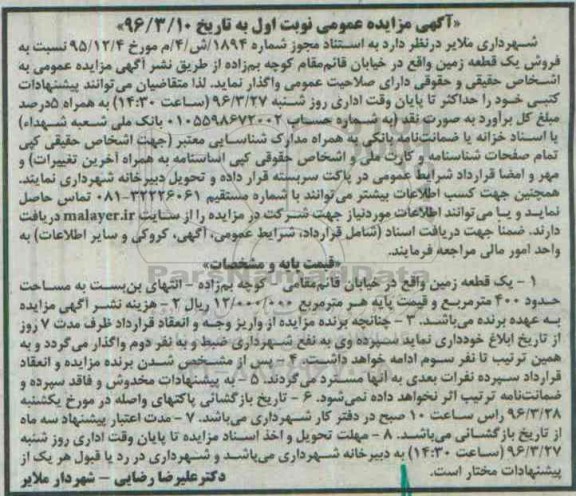 «آگهی مزایده عمومی نوبت اول به تاریخ ۹۶/۳/۱۰»
شهرداری ملایر درنظر دارد به استناد مجوز شماره ۱۸۹۴/ش/۴/م مورخ ۹۵/۱۲/۴ نسبت به
فروش یک قطعه زمین واقع در خیابان قائم‌مقام کوچه بم‌زاده از طریق نشر آگهی مزایده عمومی به
اشخاص حقیقی و حقوقی دارای صلاحیت عمومی واگذار نماید. لذا متقاضیان می‌توانند پیشنهادات
کتبی خود را حداکثر تا پایان وقت اداری روز شنبه ۹۶/۳/۲۷ (ساعت ۱۴:۳۰) به همراه ۵درصد
مبلغ کل برآورد به صورت نقد (به شماره حساب ۰۱۰۵۵۹۸۶۷۲۰۰۲ بانک ملی شعبه شهداء)
یا اسناد خزانه یا ضمانت‌نامه بانکی به همراه مدارک شناسایی معتبر (جهت اشخاص حقیقی کپی
تمام صفحات شناسنامه و کارت ملی و اشخاص حقوقی کپی اساسنامه به همراه آخرین تغییرات) و
مهر و امضا قرارداد شرایط عمومی در پاکت سربسته قرار داده و تحویل دبیرخانه شهرداری نمایند.
همچنین جهت کسب اطلاعات بیشتر می‌توانند با شماره مستقیم ۳۲۲۲۶۰۶۱-۰۸۱ تماس حاصل
نمایند و یا می‌توانند اطلاعات موردنیاز جهت شرکت در مزایده را از سایت malayer.ir دریافت
دارند. ضمناً جهت دریافت اسناد (شامل قرارداد، شرایط عمومی، آگهی، کروکی و سایر اطلاعات) به
واحد امور مالی مراجعه فرمایند.
«قیمت پایه و مشخصات»
۱ - یک قطعه زمین واقع در خیابان قائم‌مقامی - کوچه بم‌زاده - انتهای بن‌بست به مساحت
حدود ۴۰۰ مترمربع و قیمت پایه هر مترمربع ۱۲/۰۰۰/۰۰۰ ریال ۲ - هزینه نشر آگهی مزایده
به عهده برنده می‌باشد. ۳ - چنانچه برنده مزایده از واریز وجه و انعقاد قرارداد ظرف مدت ۷ روز
از تاریخ ابلاغ خودداری نماید سپرده وی به نفع شهرداری ضبط و به نفر دوم واگذار می‌گردد و به
همین ترتیب تا نفر سوم ادامه خواهد داشت. ۴ - پس از مشخص شدن برنده مزایده و انعقاد
قرارداد سپرده نفرات بعدی به آنها مسترد می‌گردند. ۵ - به پیشنهادات مخدوش و فاقد سپرده و
ضمانت‌نامه ترتیب اثر نخواهد داده نمی‌شود. ۶ - تاریخ بازگشائی پاکتهای واصله در مورخ یکشنبه
۹۶/۳/۲۸ راس ساعت ۱۰ صبح در دفتر کار شهرداری می‌باشد. ۷ - مدت اعتبار پیشنهاد سه ماه
از تاریخ بازگشائی می‌باشد. ۸ - مهلت تحویل و اخذ اسناد مزایده تا پایان وقت اداری روز شنبه
۹۶/۳/۲۷ (ساعت ۱۴:۳۰) به دبیرخانه شهرداری می‌باشد و شهرداری در رد یا قبول هر یک از
پیشنهادات مختار است.
دکتر علیرضا رضایی - شهردار ملایر